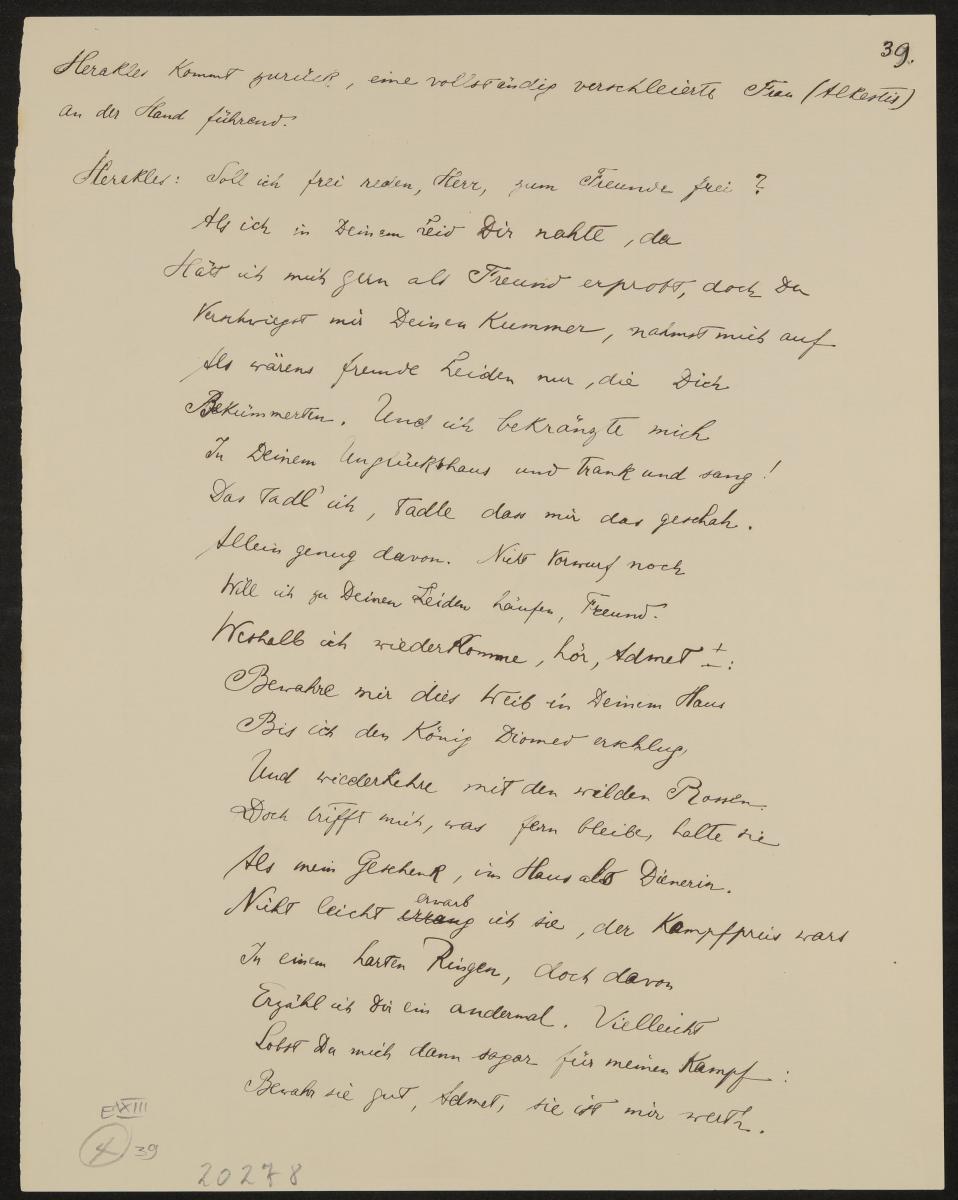 39.
Herakles kommt zurück, eine vollständig verschleierte Frau (Alkestis)
an der Hand führend.
Herakles: Soll ich frei reden, Herr, zum Freunde frei?
Als ich in Deinem Leid Dir nahte, da
Hätt ich mich gern als Freund erprobt, doch Du
Verschwiegst mir Deinen Kummer, nahmst mich auf
Als wärens fremde Leiden nur, die Dich
Bekümmerten. Und ich bekränzte mich
In Deinem Unglückshaus und trank und sang!
Das tadl' ich, tadle dass mir das geschah.
Allein genug davon. Nicht Vorwurf noch
Will ich zu Deinen Leiden häufen, Freund.
Weshalb ich wiederkomme, hör, Admet:
Bewahre mir dies Weib in Deinem Haus
Bis ich den König Diomed erschlug,
Und wiederkehre mit den wilden Rossen.
Doch trifft mich, was fern bleibe, halte sie
Als mein Geschenk, im Haus als Dienerin.
Nicht leicht errang erwarb ich sie, der Kampfpreis wars
In einem harten Ringen, doch davon
Erzähl ich Dir ein andermal. Vielleicht
Lobst Du mich dann sogar für meinen Kampf:
Bewahr sie gut, Admet, sie ist mir wert.
E XIII
4 39
20278